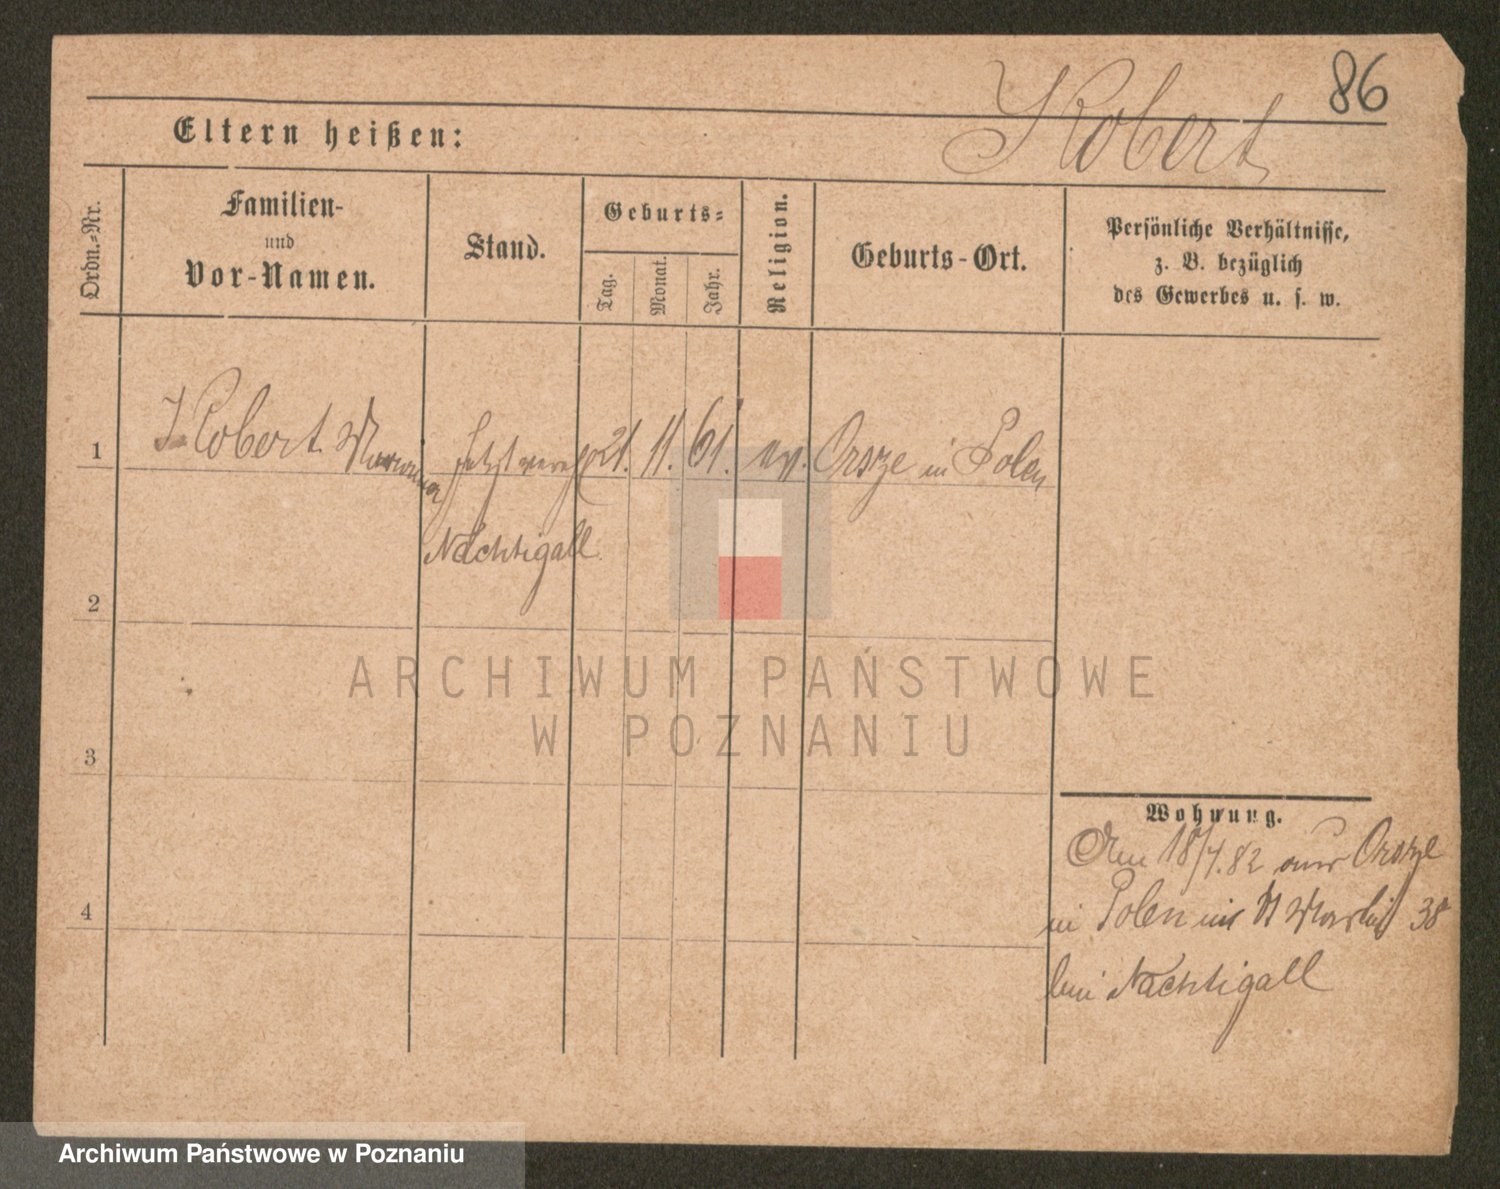 86
Robert
Eltern heißen:
Ordn.=Nr.
Familien-
und
Vor-Namen.
Stand.
Geburts=
Tag.
Monat.
Jahr.
Religion.
Geburts-Ort.
Persönliche Verhältnisse,
z. B. bezüglich
des Gewerbes u. s. w.
1 Robert Marianna jetzt 21. 11. 61. ev. Orsze in Polen
Nachtigall.
2
3
4
Wohnung.
Am 18/4.82 aus Orsze
in Polen in St Martin 38
bei Nachtigall
ARCHIWUM PAŃSTWOWE
W POZNANIU
Archiwum Państwowe w Poznaniu